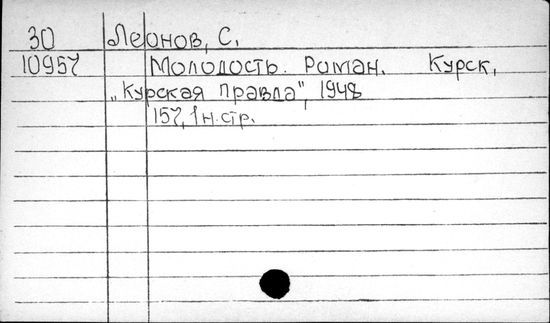 30 Леонов, С.
10957 Молодость. Роман. Курск,
„Курская правда", 1948
157, 1 н. стр.